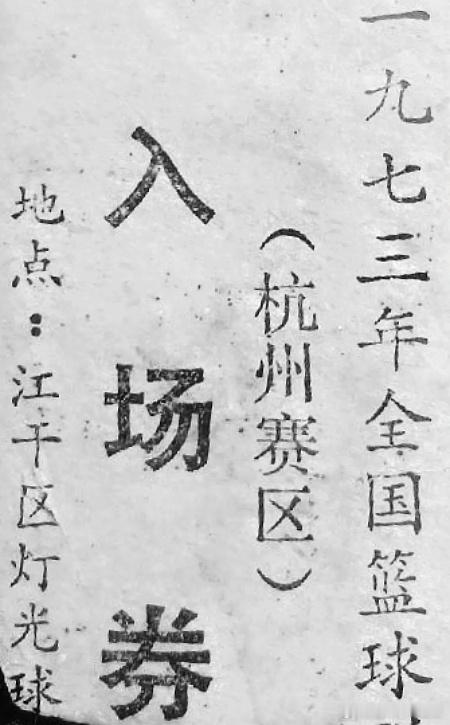 一九七三年全国篮球
（杭州赛区）
入场券
地点：江干区灯光球